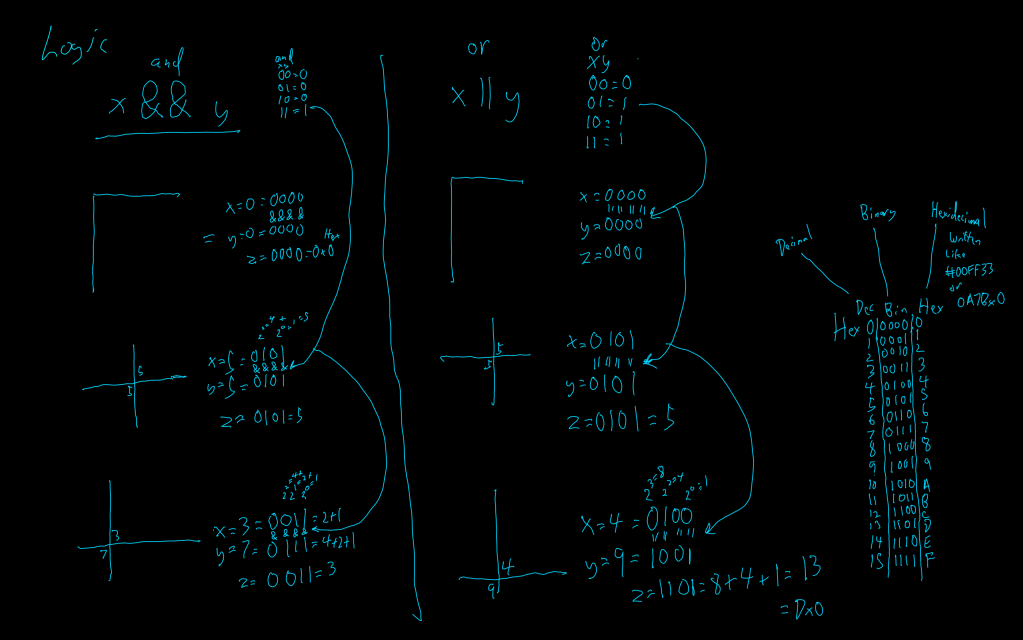 Logic
and
x && y
and
xy
00=0
01=0
10=0
11=1
x=0=0000
&&&&
= y=0=0000
Hex
z=0000=0x0
2²=4 +
2⁰=1=5
x=5=0101
&&&&
y=5=0101
z=0101=5
5
5
2²=4+
2¹=2+
2⁰=1
x=3=0011=2+1
&&&&
y=7=0111=4+2+1
z=0011=3
3
7
or
x || y
Or
xy
00=0
01=1
10=1
11=1
x=0000
|| || || ||
y=0000
z=0000
5
5
x=0101
|| || || ||
y=0101
z=0101=5
2³=8
2²=4
2⁰=1
x=4=0100
|| || || ||
y=9=1001
z=1101=8+4+1=13
=Dx0
4
9
Decimal
Binary
Hexidecimal
Written
Like
#00FF33
or
0A7Bx0
Dec Bin Hex
Hex 0 0000 0
1 0001 1
2 0010 2
3 0011 3
4 0100 4
5 0101 5
6 0110 6
7 0111 7
8 1000 8
9 1001 9
10 1010 A
11 1011 B
12 1100 C
13 1101 D
14 1110 E
15 1111 F